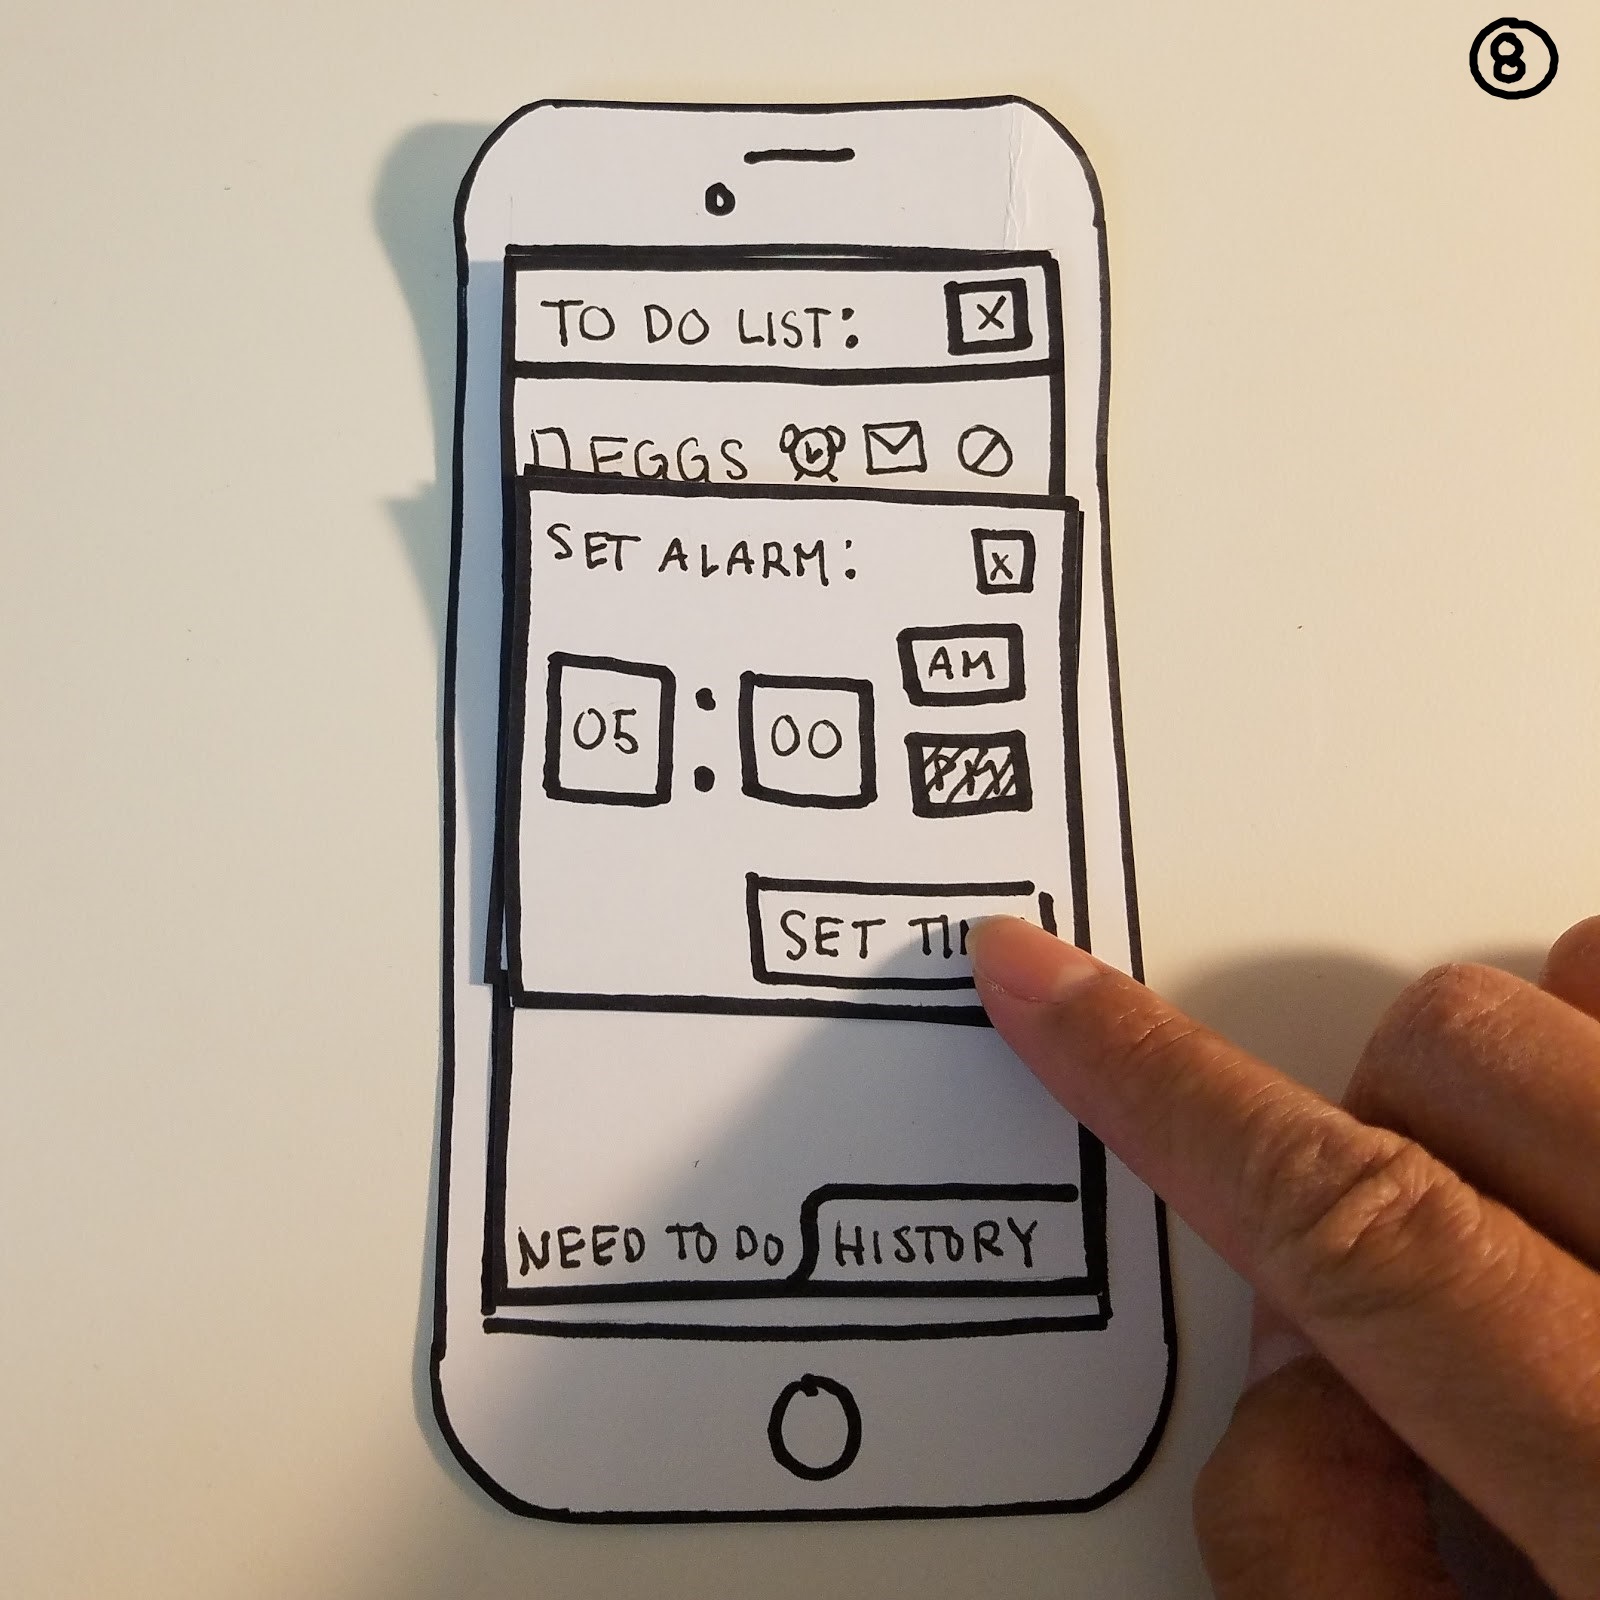 8
TO DO LIST: X
EGGS
SET ALARM: X
AM
05 : 00
PM
SET TIM
NEED TO DO HISTORY